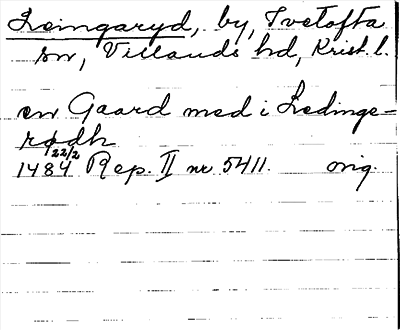 Leingaryd, by, Ivetofta
sn, Villands hd, Krist. l.
en Gaard med i Ledinge=
rødh
1484 22/2 Rep. II nr 5411. orig.